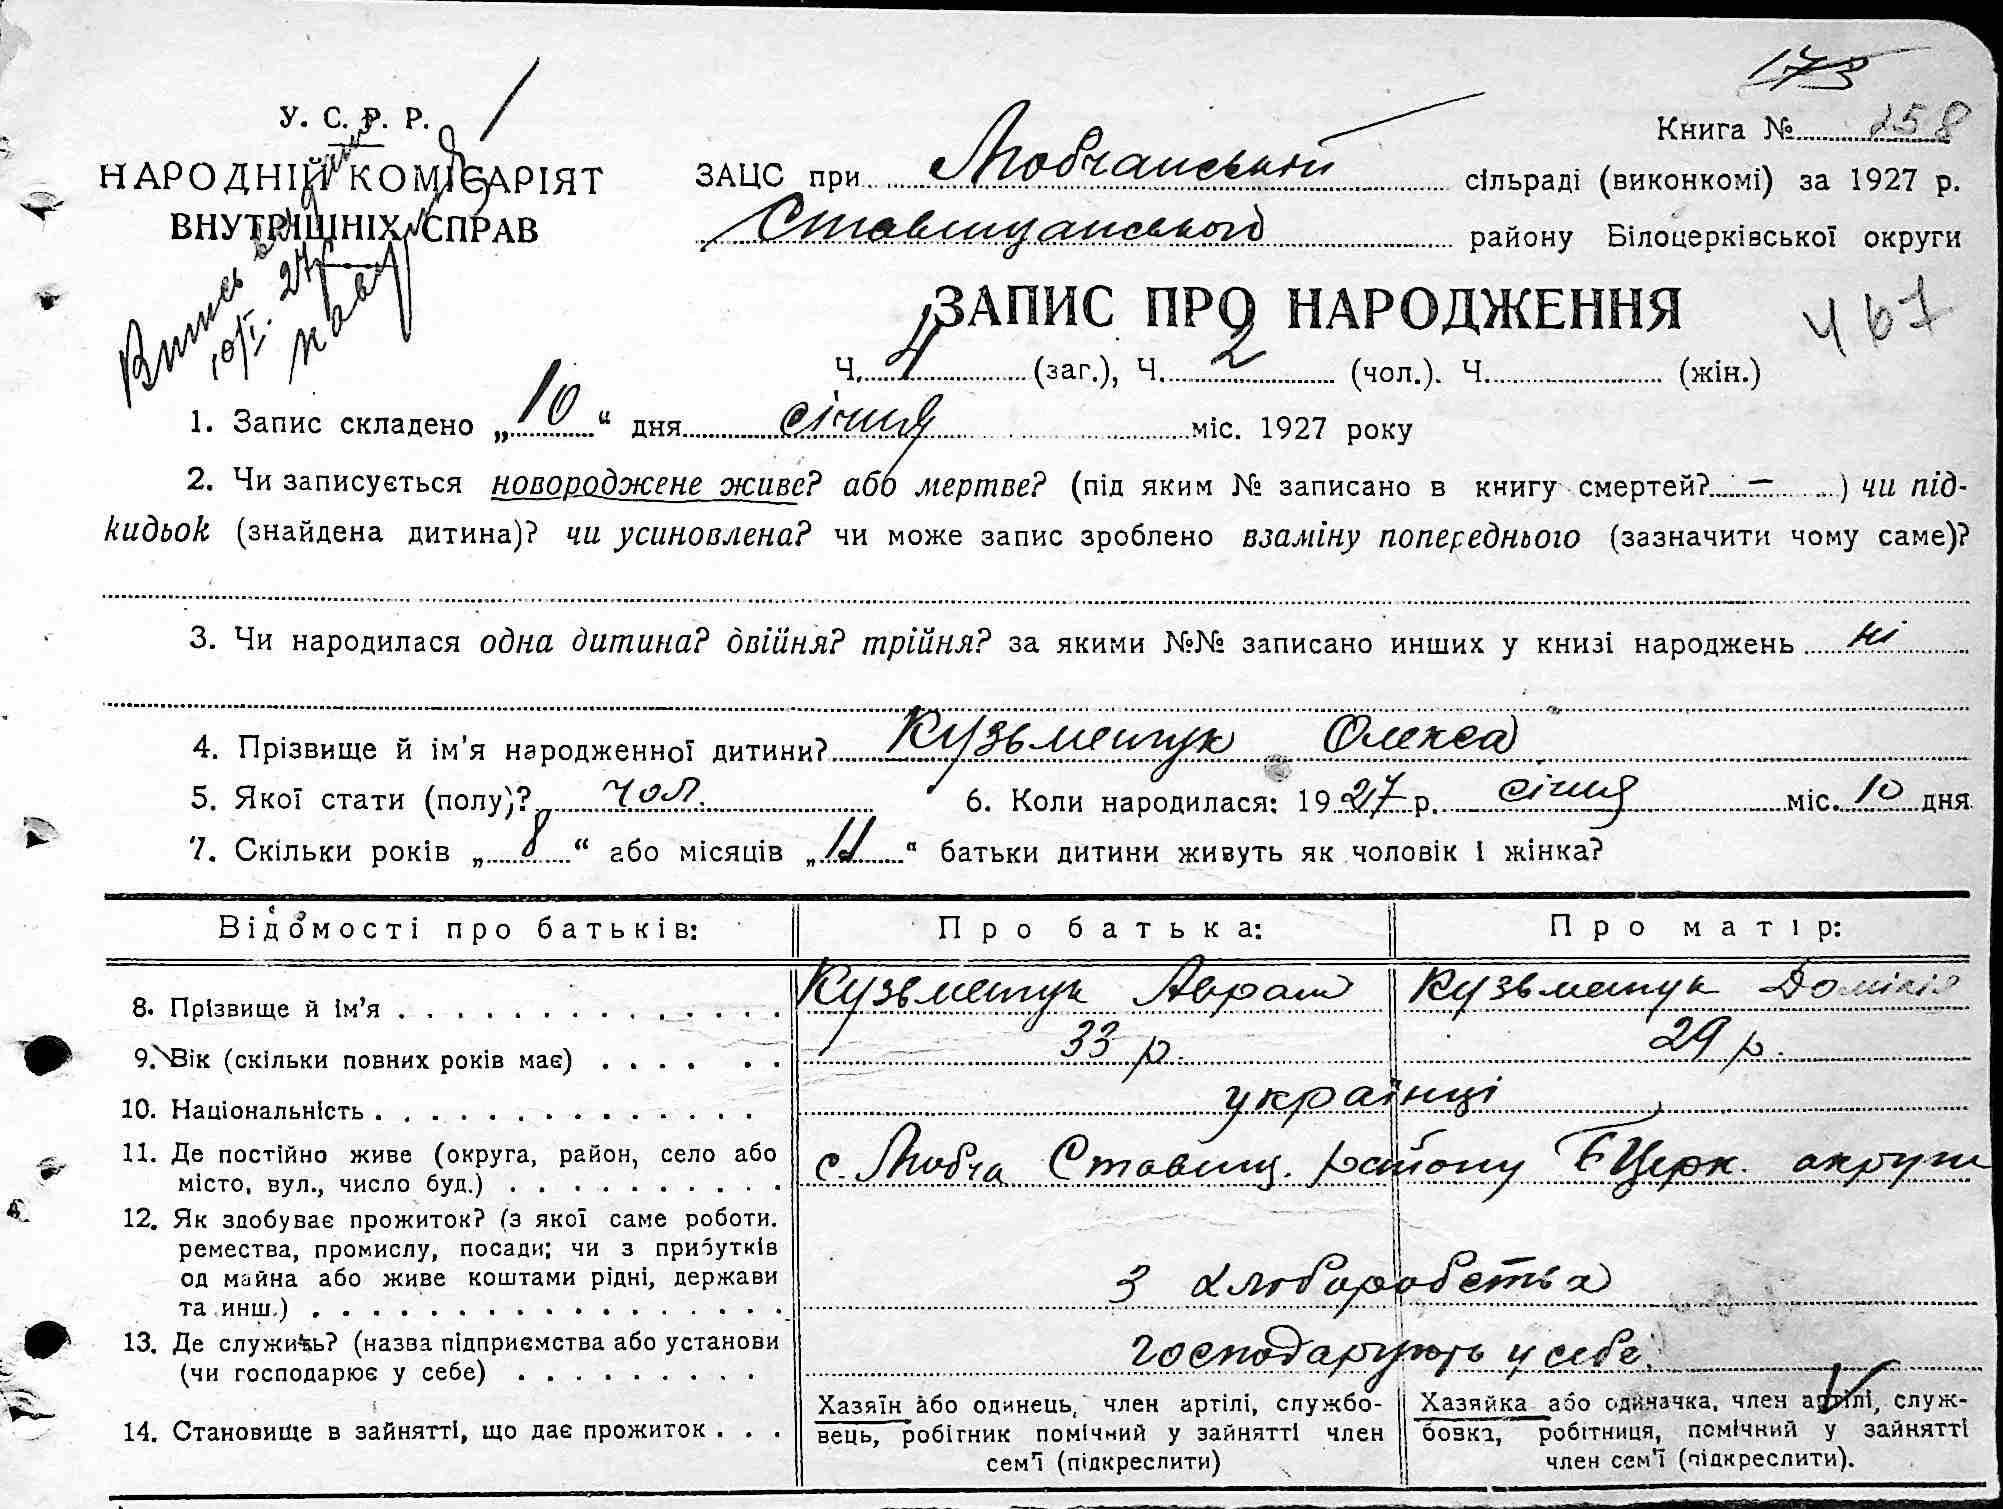 173
У. С. Р. Р.
НАРОДНІЙ КОМІСАРІЯТ
ВНУТРІШНІХ СПРАВ
Книга № 258
ЗАЦС при Любчанській сільраді (виконкомі) за 1927 р.
Ставищанського району Білоцерківської округи
Випись видано
10/I. 27р.
ЗАПИС ПРО НАРОДЖЕННЯ
467
Ч. 4 (заг.), Ч. 2 (чол.). Ч. (жін.)
1. Запис складено „10“ дня січня міс. 1927 року
2. Чи записується новороджене живе? або мертве? (під яким № записано в книгу смертей? — ) чи під-
кидьок (знайдена дитина)? чи усиновлена? чи може запис зроблено взаміну попереднього (зазначити чому саме)?
3. Чи народилася одна дитина? двійня? трійня? за якими №№ записано инших у книзі народжень ні
4. Прізвище й ім'я народженної дитини? Кузьменчук Олекса
5. Якої стати (полу)? чол. 6. Коли народилася: 1927 р. січня міс. 10 дня
7. Скільки років „8“ або місяців „11“ батьки дитини живуть як чоловік і жінка?
Відомості про батьків: Про батька: Про матір:
8. Прізвище й ім'я Кузьменчук Аврам Кузьменчук Домікія
9. Вік (скільки повних років має) 33 р. 29 р.
10. Національність українці
11. Де постійно живе (округа, район, село або
місто, вул., число буд.) с. Любча Ставищ. району БЦерк. округи
12. Як здобуває прожиток? (з якої саме роботи.
ремества, промислу, посади; чи з прибутків
од майна або живе коштами рідні, держави
та инш.) З хліборобства
13. Де служить? (назва підприємства або установи
(чи господарює у себе) господарують у себе.
14. Становище в зайнятті, що дає прожиток
Хазяїн або одинець, член артілі, службо-
вець, робітник помічний у зайнятті член
сем'ї (підкреслити)
Хазяйка або одиначка, член артілі, служ-
бовка, робітниця, помічний у зайнятті
член сем'ї (підкреслити).